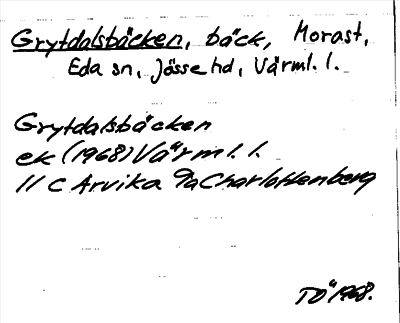 Grytdalsbäcken, bäck, Morast,
Eda sn, Jösse hd, Värml. l.
Grytdalsbäcken
ek (1968) Värml. l.
11 C Arvika 9a Charlottenberg
TÖ 1968.